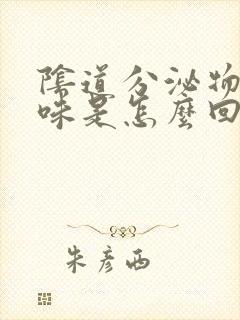 陰道分泌物
味是怎麼回
朱彥西